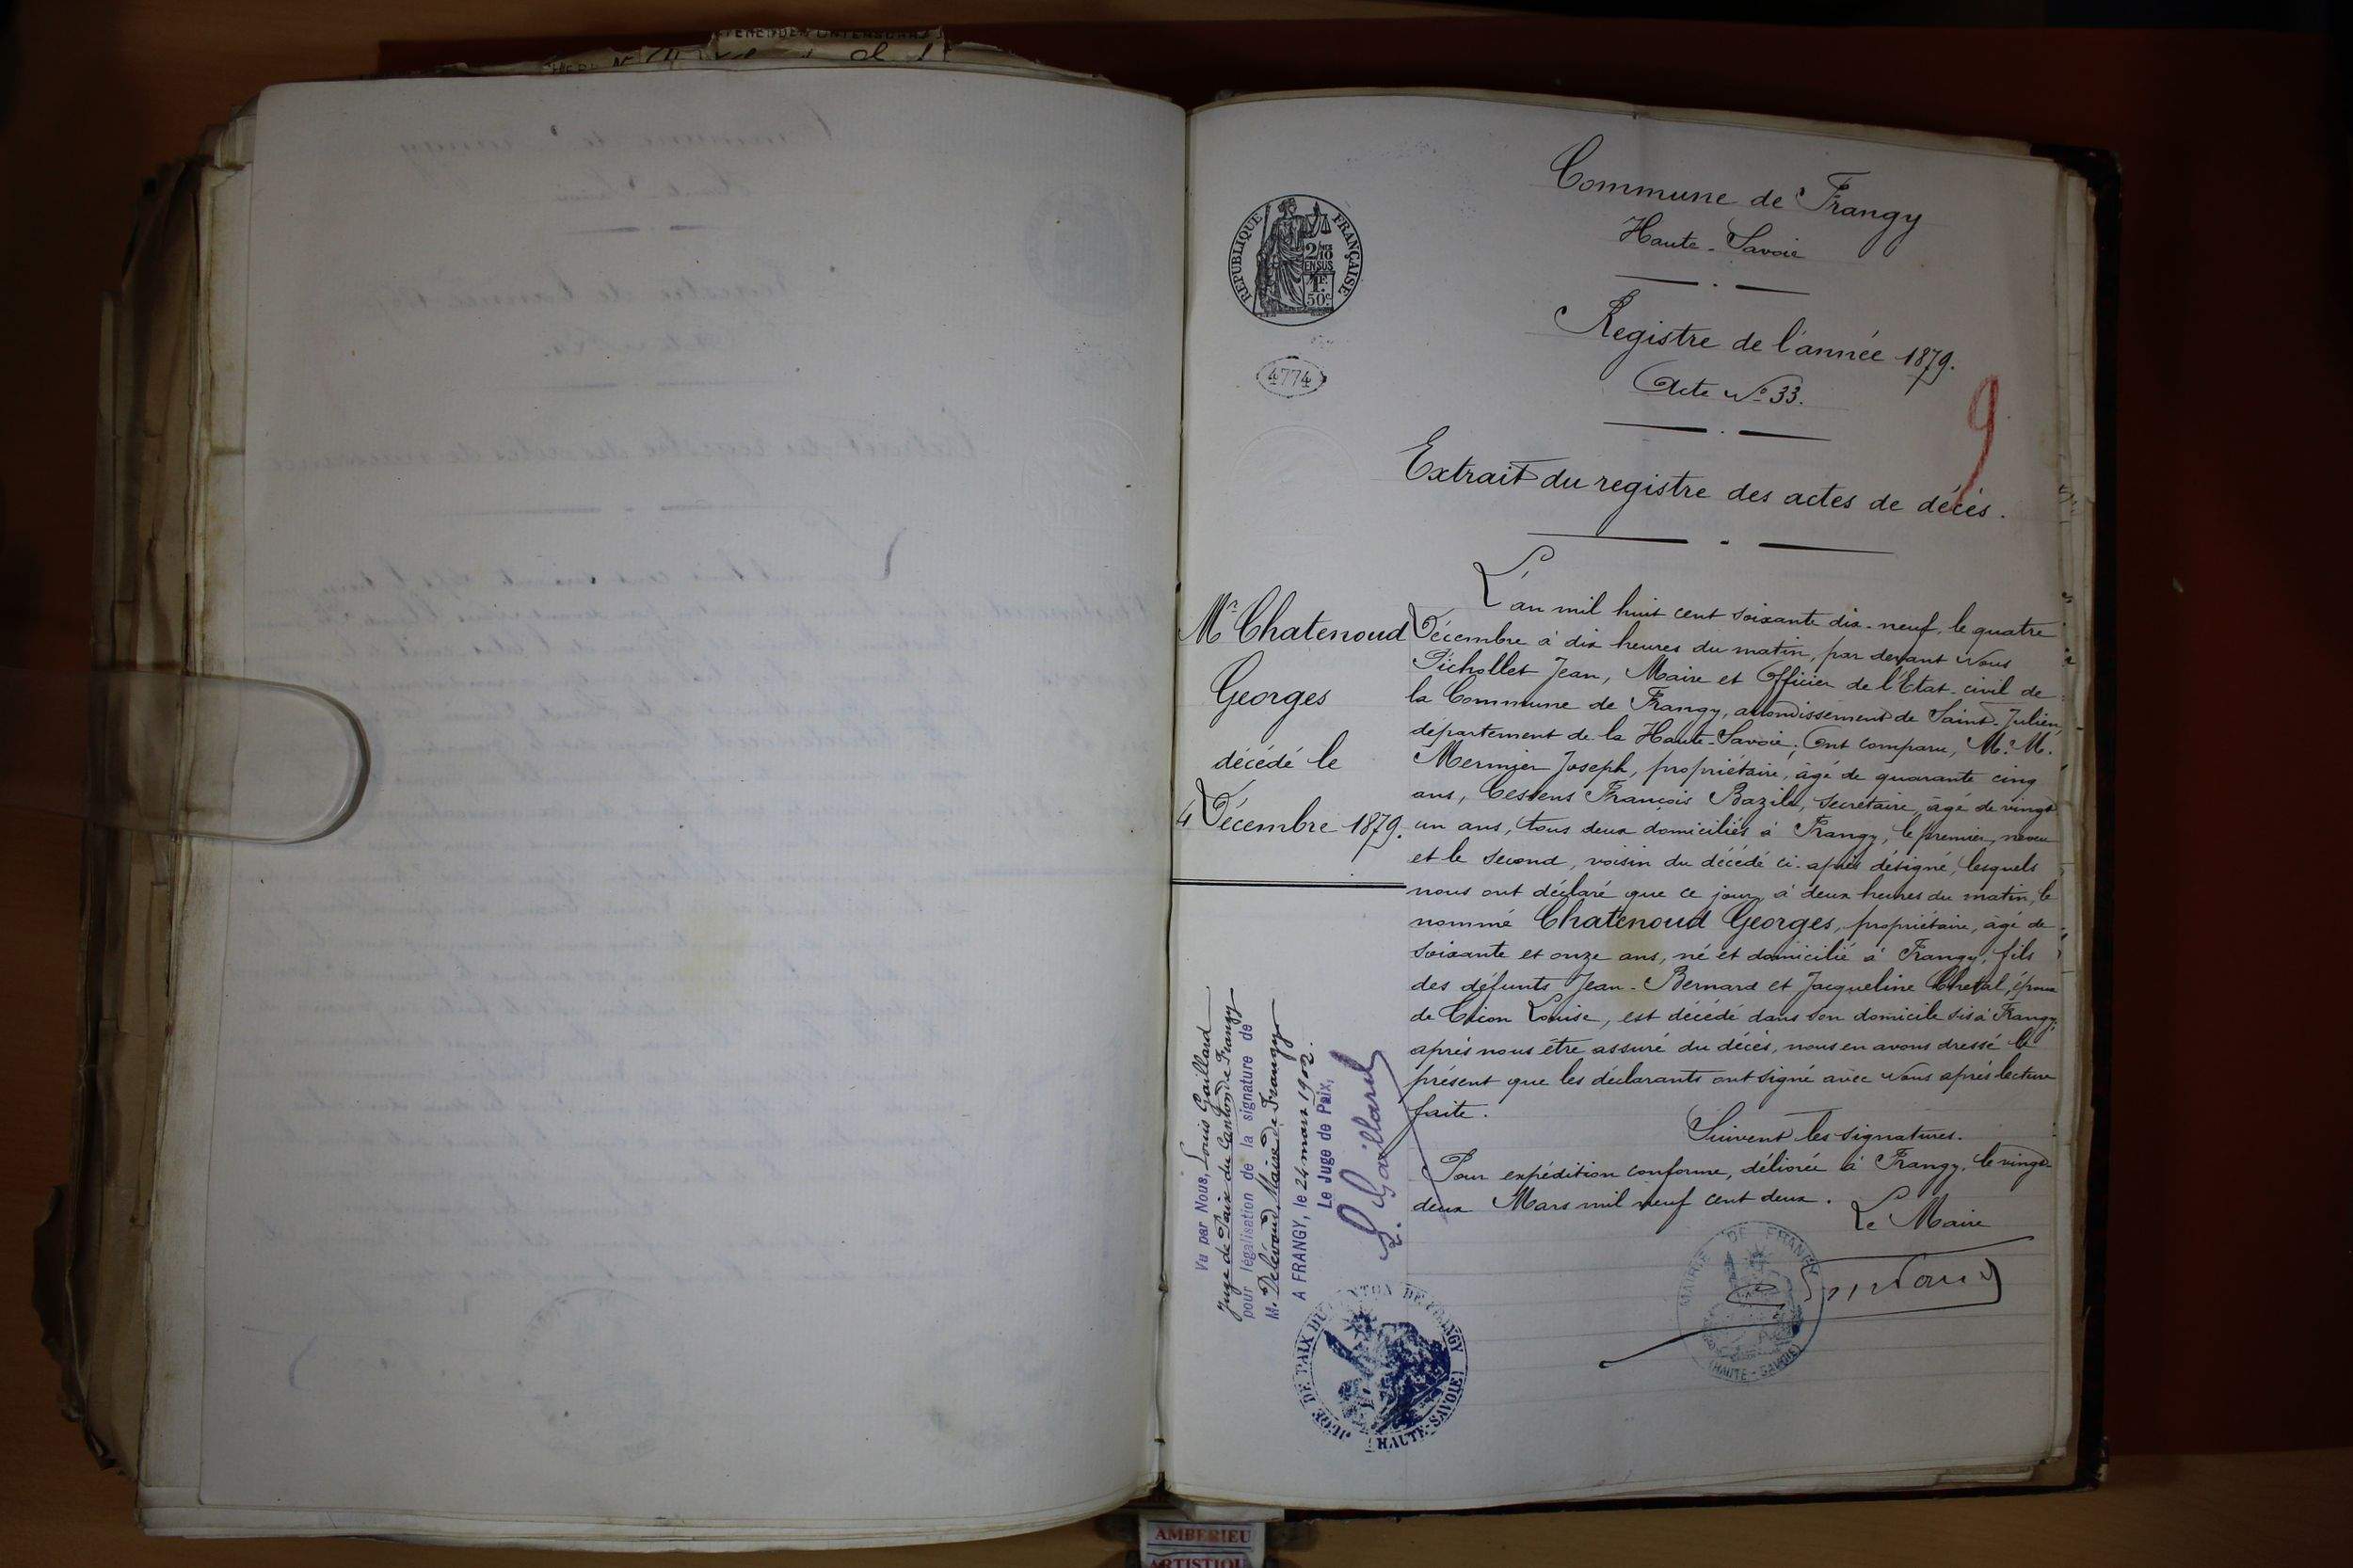 Commune de Frangy
Haute-Savoie
REPUBLIQUE FRANÇAISE
2/10
EN SUS
1F.
50c.
4774
Registre de l'année 1879.
Acte No 33.
9
Extrait du registre des actes de décès.
Mr Chatenoud
Georges
décédé le
4 Décembre 1879.
L'an mil huit cent soixante dix-neuf, le quatre
Décembre à dix heures du matin, par devant Nous
Pichollet Jean, Maire et Officier de l'Etat-civil de
la Commune de Frangy, arrondissement de Saint-Julien,
département de la Haute-Savoie; Ont comparu, M.M.
Mermier Joseph, propriétaire, âgé de quarante cinq
ans, Cessens François Bazile, secrétaire, âgé de vingt
un ans, tous deux domiciliés à Frangy, le premier, neveu
et le second, voisin du décédé ci-après désigné, lesquels
nous ont déclaré que ce jour, à deux heures du matin, le
nommé Chatenoud Georges, propriétaire, âgé de
soixante et onze ans, né et domicilié à Frangy, fils
des défunts Jean-Bernard et Jacqueline, époux
de Louise, est décédé dans son domicile sis à Frangy;
après nous être assuré du décès, nous en avons dressé le
présent que les déclarants ont signé avec Nous après lecture
faite.
Suivent les signatures.
Pour expédition conforme, délivrée à Frangy, le vingt-
deux Mars mil neuf cent deux.
Le Maire
MAIRIE DE FRANGY
(HAUTE-SAVOIE)
Vu par Nous, Louis Gaillard
Juge de Paix du Canton de Frangy
pour légalisation de la signature de
M. Delévaud, Maire de Frangy
A FRANGY, le 24 mars 1902.
Le Juge de Paix,
L. Gaillard
JUGE DE PAIX DU CANTON DE FRANGY
(HAUTE-SAVOIE)
AMBERIEU
ARTISTIQU